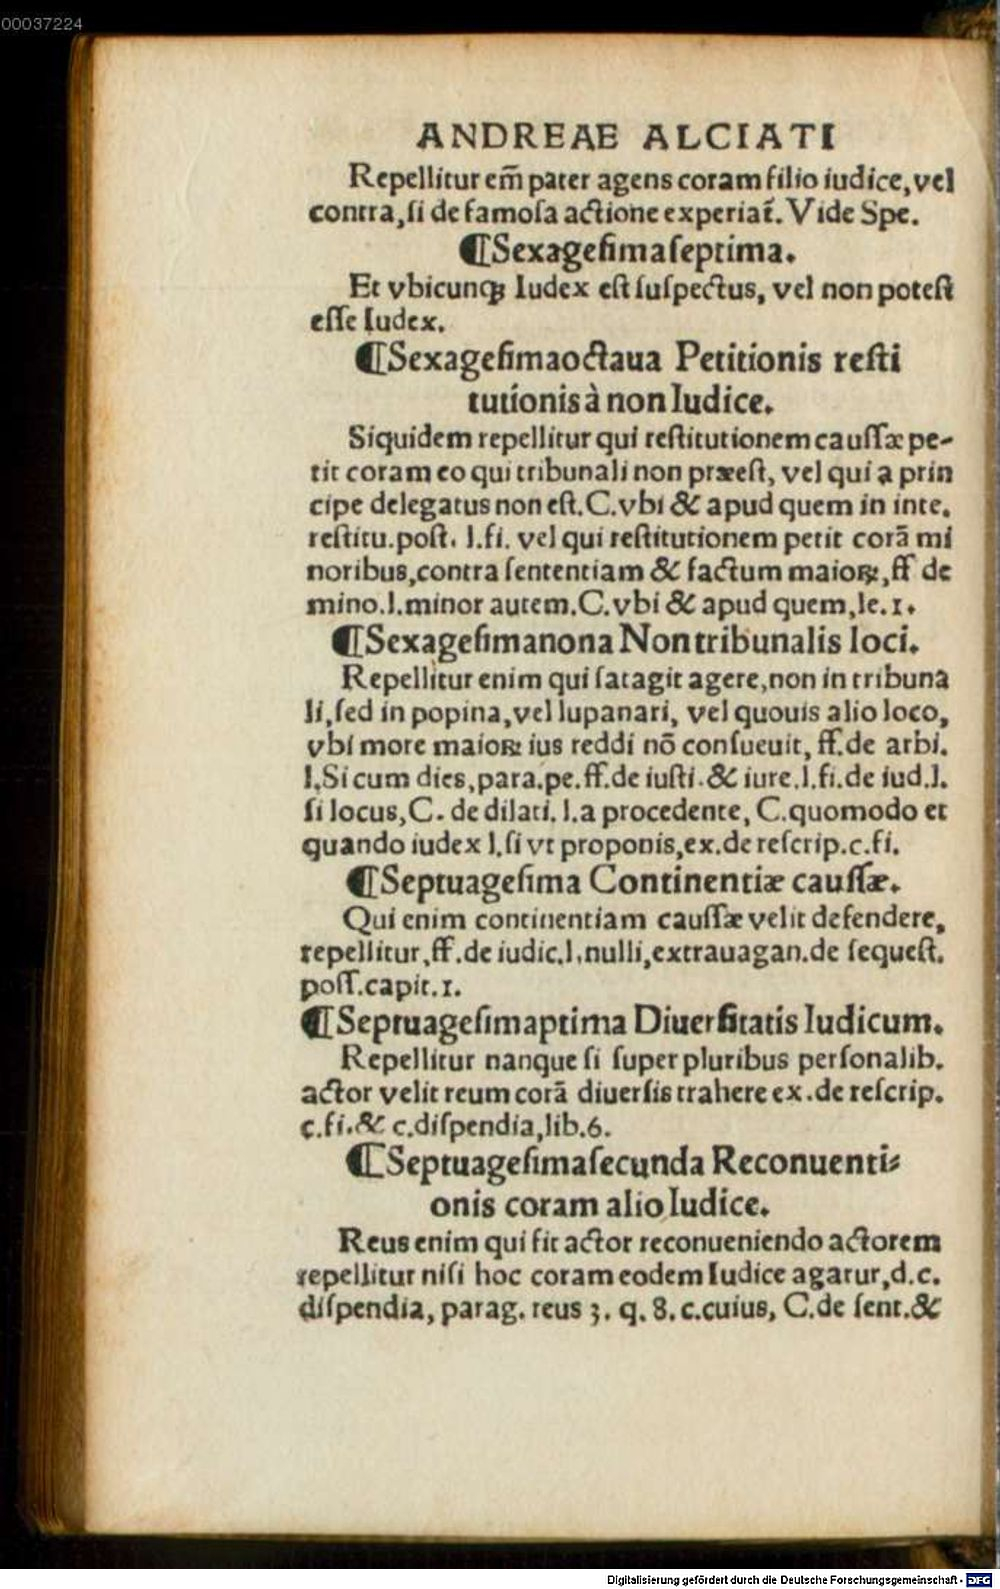 00037224
ANDREAE ALCIATI
Repellitur em̄ pater agens coram filio iudice, vel
contra, ſi de famoſa actione experiat̄. Vide Spe.
¶Sexageſimaſeptima.
Et vbicunqꝫ Iudex eſt ſuſpectus, vel non poteſt
eſſe Iudex.
¶Sexageſimaoctaua Petitionis reſti
tutionis à non Iudice.
Siquidem repellitur qui reſtitutionem cauſſæ pe-
tit coram eo qui tribunali non præeſt, vel qui a prin
cipe delegatus non eſt. C. vbi & apud quem in inte.
reſtitu. poſt. l. fi. vel qui reſtitutionem petit corā mi
noribus, contra ſententiam & factum maioꝝ, ff de
mino. l. minor autem. C. vbi & apud quem, le. 1.
¶Sexageſimanona Non tribunalis loci.
Repellitur enim qui ſatagit agere, non in tribuna
li, ſed in popina, vel lupanari, vel quouis alio loco,
vbi more maioꝝ ius reddi nō conſueuit, ff. de arbi.
l. Si cum dies, para. pe. ff. de iuſti. & iure. l. fi. de iud. l.
ſi locus, C. de dilati. l. a procedente, C. quomodo et
quando iudex l. ſi vt proponis, ex. de reſcrip. c. fi.
¶Septuageſima Continentiæ cauſſæ.
Qui enim continentiam cauſſæ velit defendere,
repellitur, ff. de iudic. l. nulli, extrauagan. de ſequeſt.
poſſ. capit. 1.
¶Septuageſimaprima Diuerſitatis Iudicum.
Repellitur nanque ſi ſuper pluribus perſonalib.
actor velit reum corā diuerſis trahere ex. de reſcrip.
c. fi. & c. diſpendia, lib. 6.
¶Septuageſimaſecunda Reconuenti-
onis coram alio Iudice.
Reus enim qui fit actor reconueniendo actorem
repellitur niſi hoc coram eodem Iudice agatur, d. c.
diſpendia, parag. reus 3. q. 8. c. cuius, C. de ſent. &
Digitalisierung gefördert durch die Deutsche Forschungsgemeinschaft - DFG